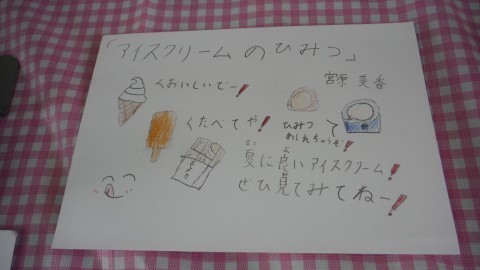 「アイスクリームのひみつ」
宮原 美香
くおいしいでー!
くたべてや!
ひみつ
おしえちゃうぞ!
なつ
夏に良いアイスクリーム!
ぜひ見てみてねー!